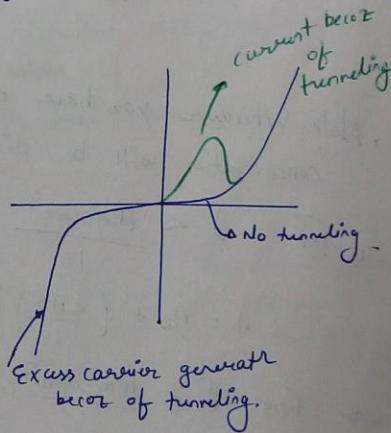 current becoz
of
tunneling
No tunneling.
Excess carrier generatn
becoz of tunneling.